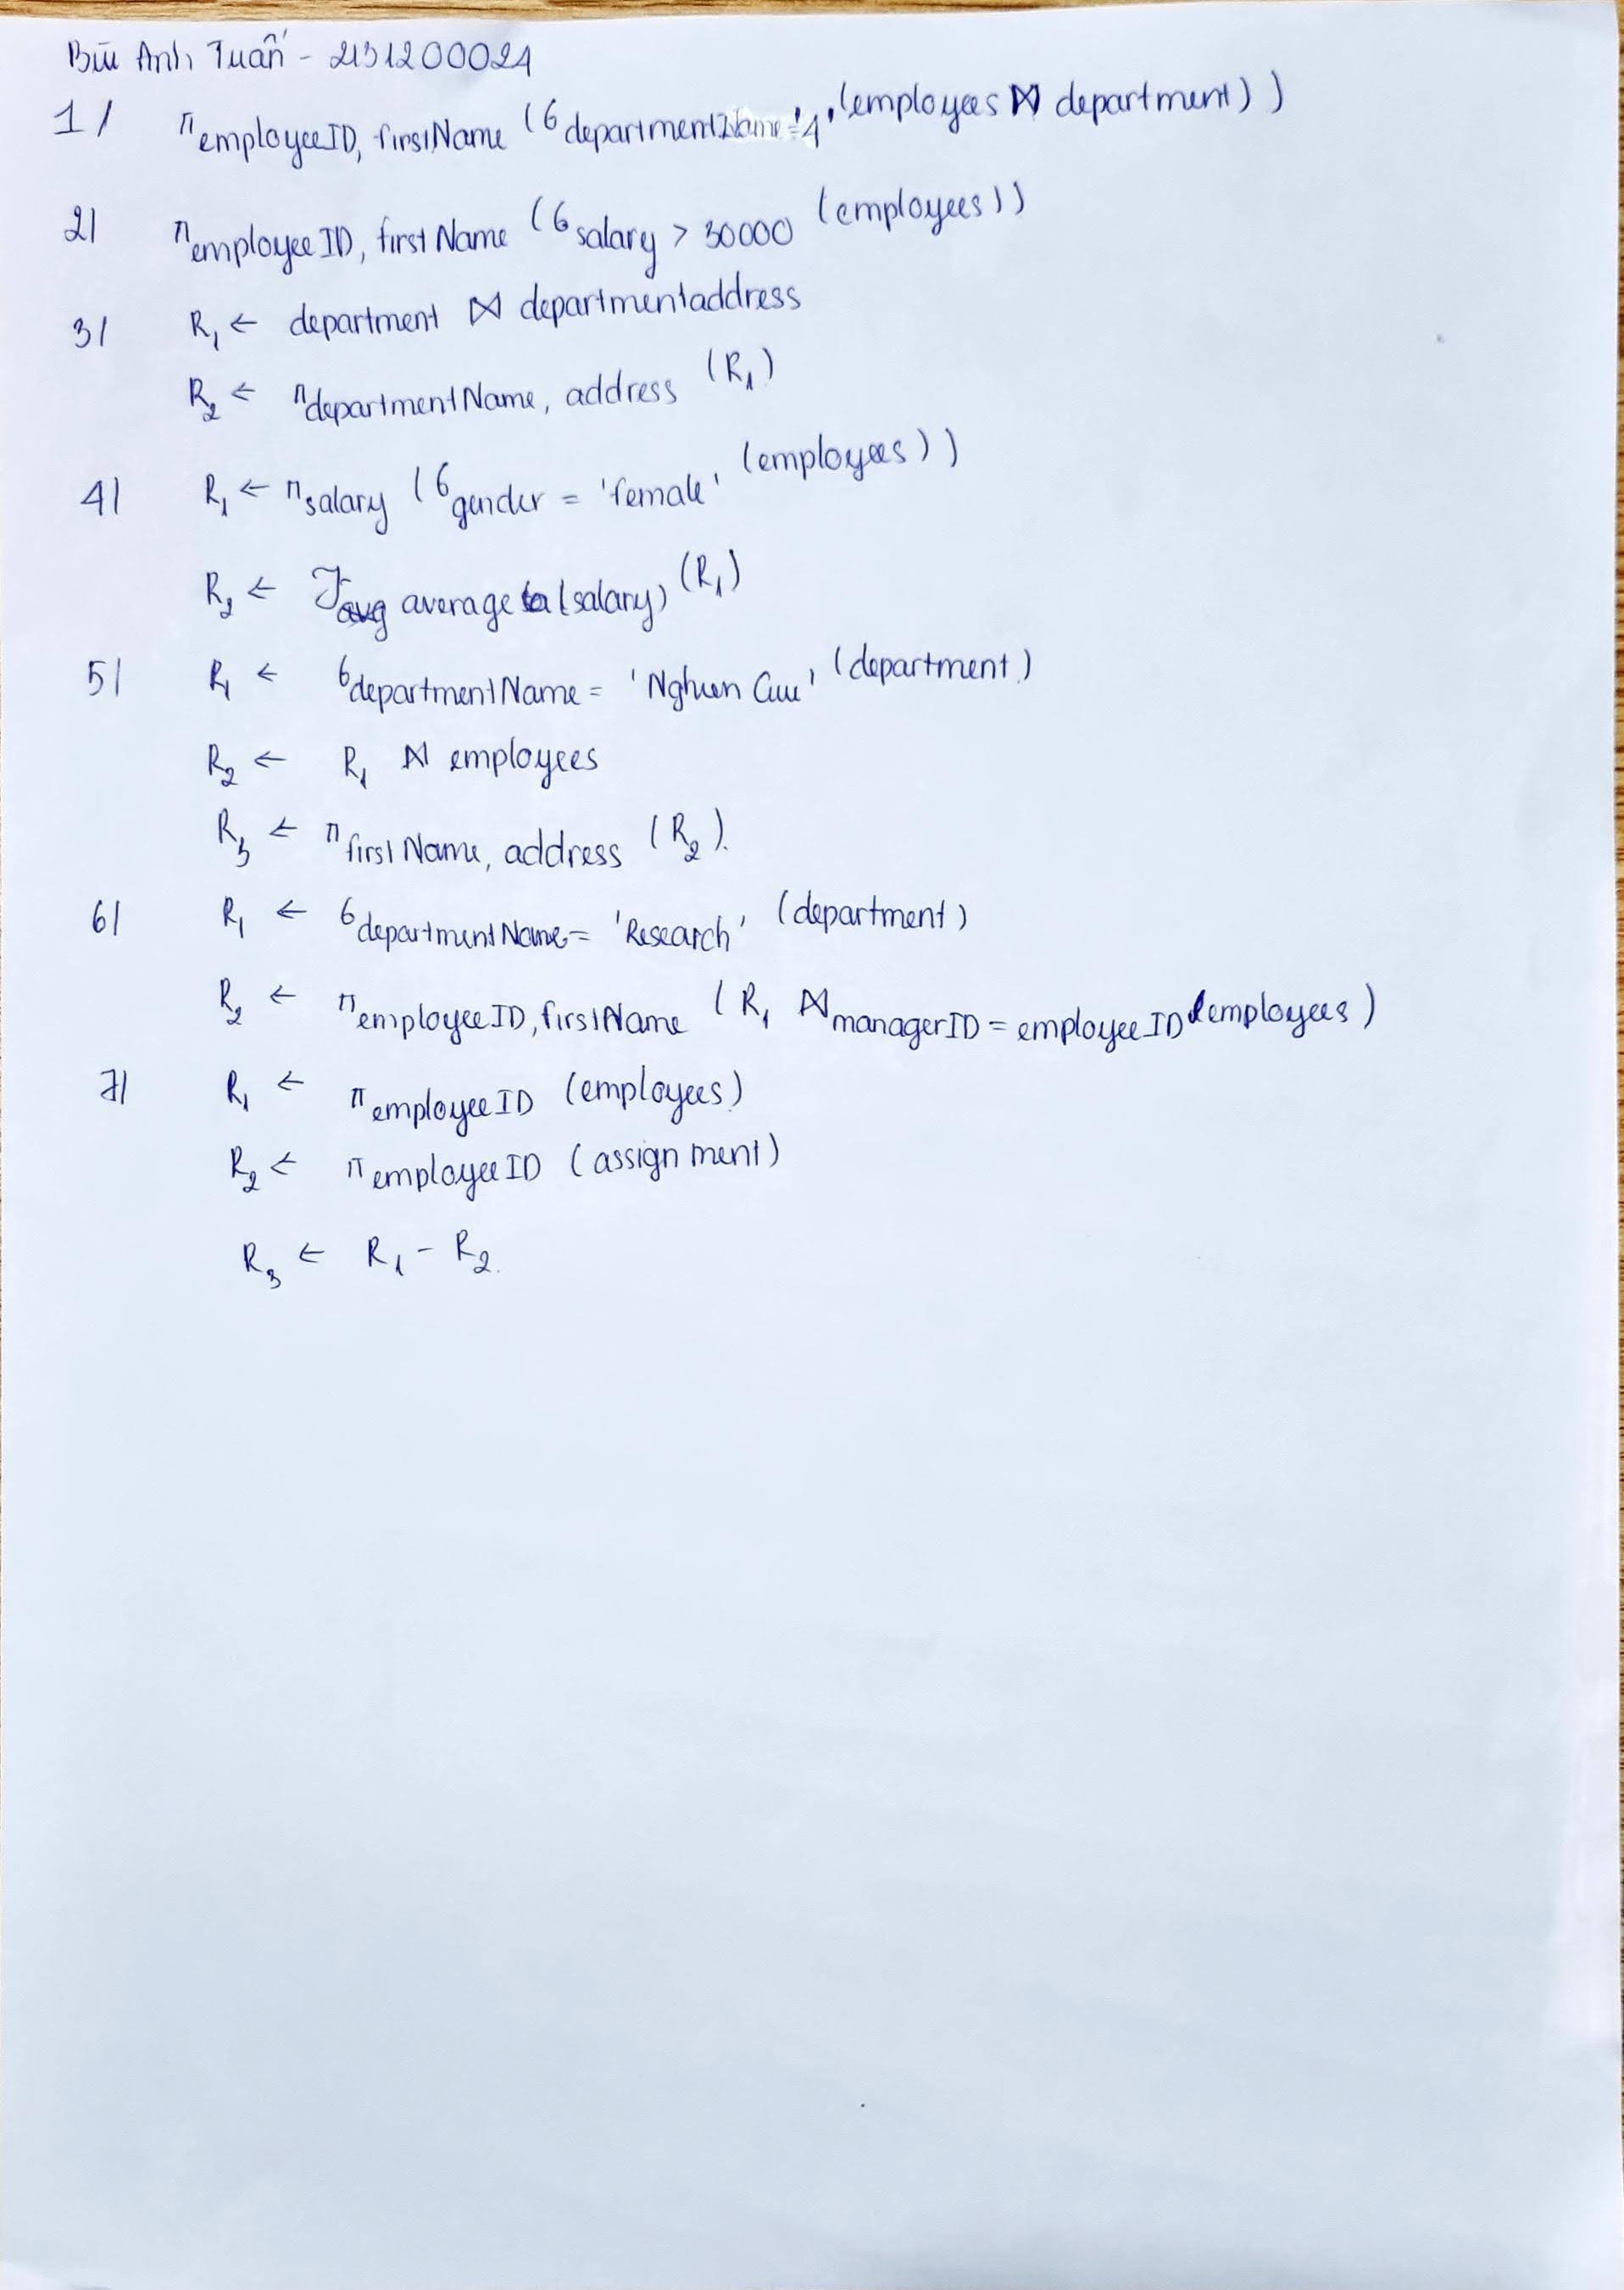 Bùi Anh Tuấn - 2131200024
1/ π employeeID, firstName (σ departmentName = '4' (employees ⋈ department))
2/ π employeeID, firstName (σ salary > 30000 (employees))
3/ R₁ ← department ⋈ departmentaddress
R₂ ← π departmentName, address (R₁)
4/ R₁ ← π salary (σ gender = 'female' (employees))
R₂ ← ℱ average (salary) (R₁)
5/ R₁ ← σ departmentName = 'Nghien Cuu' (department)
R₂ ← R₁ ⋈ employees
R₃ ← π firstName, address (R₂).
6/ R₁ ← σ departmentName = 'Research' (department)
R₂ ← π employeeID, firstName (R₁ ⋈ managerID = employeeID employees)
7/ R₁ ← π employeeID (employees)
R₂ ← π employeeID (assignment)
R₃ ← R₁ - R₂.